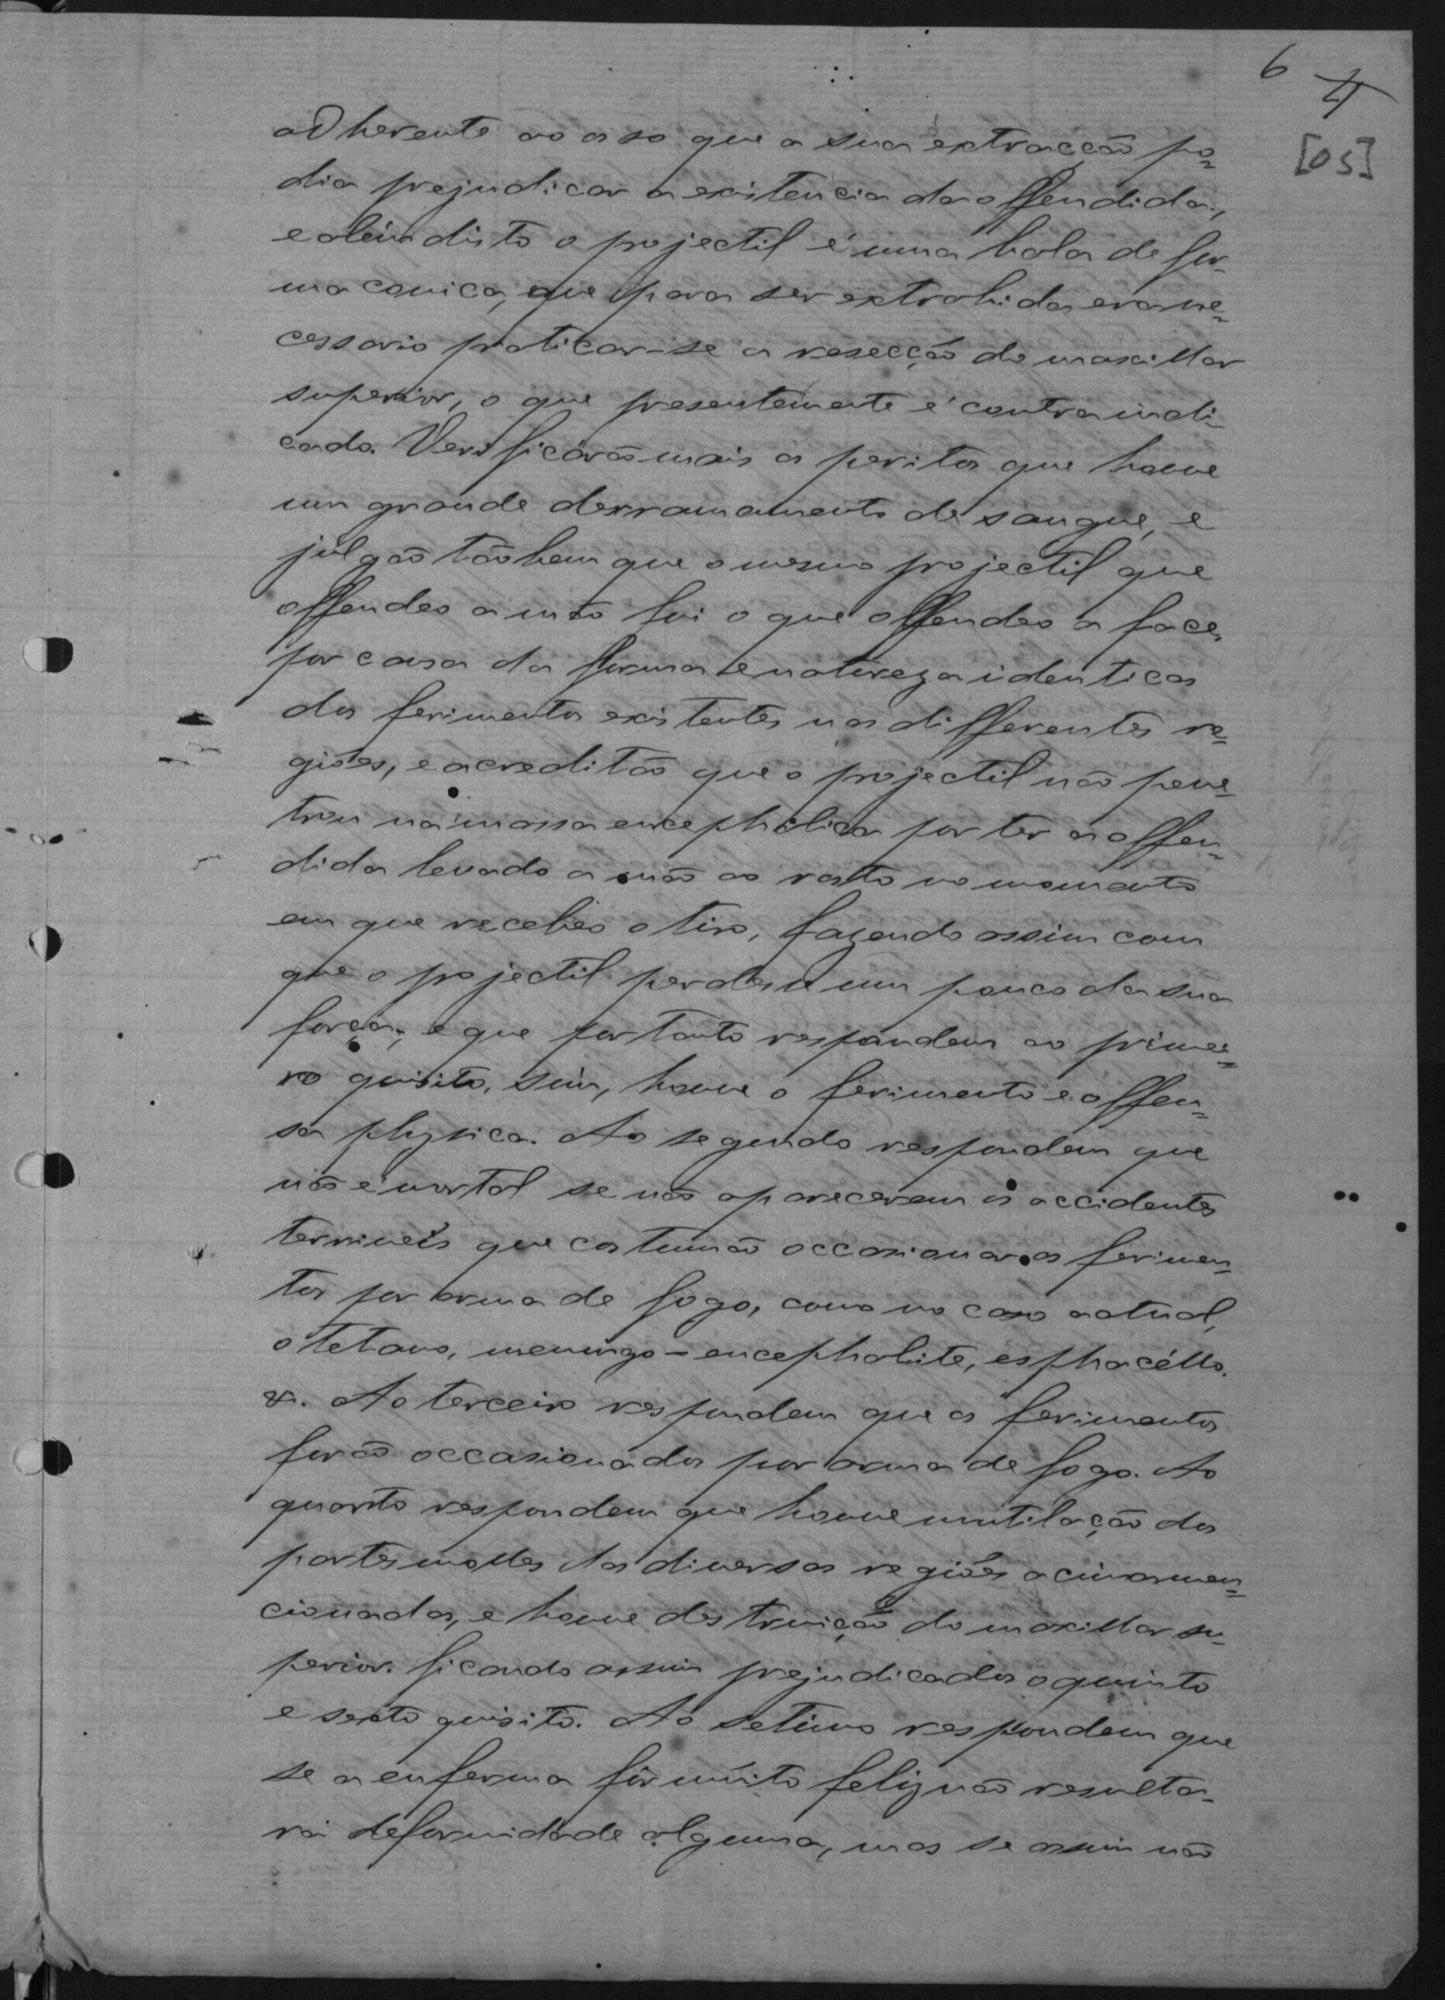 6 4
[05]
adherente ao osso que a sua extracção po=
dia prejudicar a existencia da offendida,
e além disto o projectil é uma bala de for-
ma conica, que para ser extrahida era ne=
cessario praticar-se a resecção do maxillar
superior, o que presentemente é contraindi-
cado. Verificárão mais os peritos que houve
um grande derramamento de sangue, e
julgão tãobem que o mesmo projectil que
offendeo a mão foi o que offendeo a face,
por causa da forma e natureza identicas
dos ferimentos existentes nas differentes re=
giões, e acreditão que o projectil não pene=
trou na massa encephalica por ter a offen=
dida levado a mão ao rosto no momento
em que recebeo o tiro, fazendo assim com
que o projectil perdesse um pouco da sua
força; e que portanto respondem ao primei=
ro quisito, sim, houve o ferimento e offen=
sa physica. Ao segundo respondem que
não é mortal se não apparecerem os accidentes
terriveis que costumão occasionar os ferimen=
tos por arma de fogo, como no caso actual,
o tetano, meningo-encephalite, esphacéllo.
&. Ao terceiro respondem que os ferimentos
forão occasionados por arma de fogo. Ao
quarto respondem que houve mutilação das
partes molles das diversas regiões acima men=
cionadas, e houve destruição do maxillar su=
perior. ficando assim prejudicados o quinto
e sexto quisito. Ao setimo respondem que
se a enferma fôr muito feliz não resulta-
rá deformidade alguma, mas se assim não